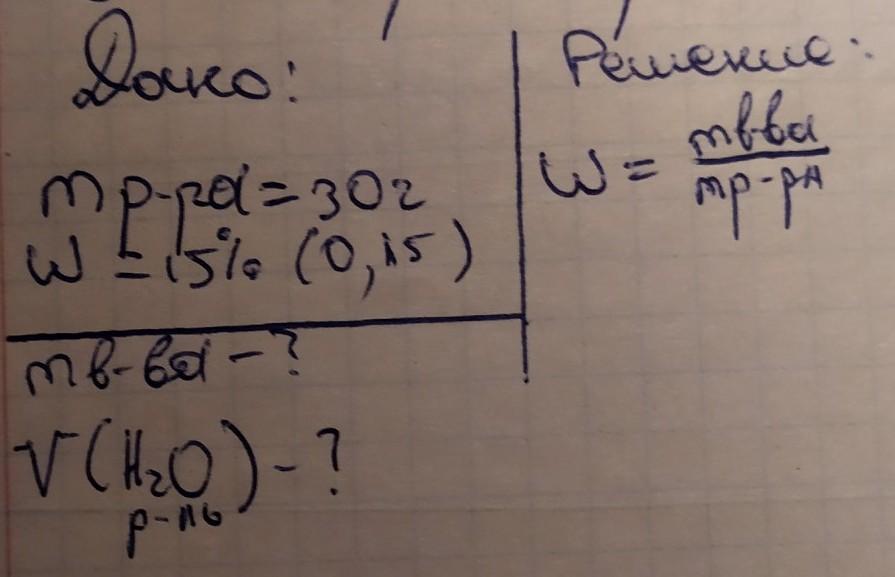 Дано:
mр-ра = 30г
W = 15% (0,15)
mв-ва - ?
V(H₂O) - ?
р-ль
Решение:
W = mв-ва
mр-ра